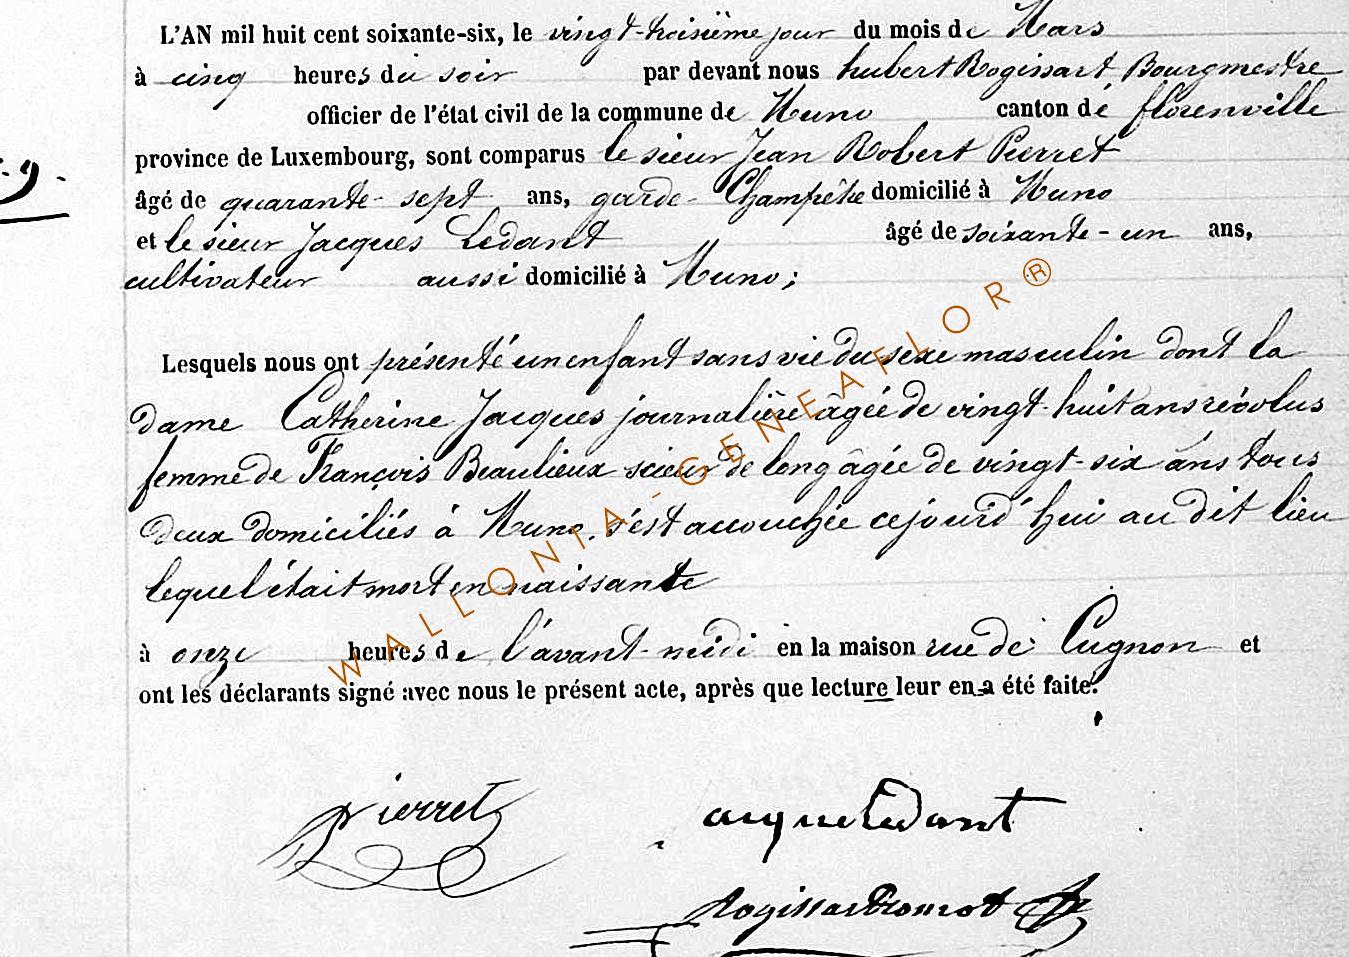 L'AN mil huit cent soixante-six, le vingt-troisième jour du mois de Mars
à cinq heures du soir par devant nous hubert Rogissart Bourgmestre
officier de l'état civil de la commune de Muno canton de florenville
province de Luxembourg, sont comparus le sieur Jean Robert Pierret
9.
âgé de quarante-sept ans, garde-Champêtre domicilié à Muno
et le sieur Jacques Ledant âgé de soixante-un ans,
cultivateur aussi domicilié à Muno;
Lesquels nous ont présenté un enfant sans vie du sexe masculin dont la
dame Catherine Jacques journalière âgée de vingt-huit ans révolus
femme de François Beaulieux scieur de long âgée de vingt-six ans tous
deux domiciliés à Muno, s'est accouchée cejourd'hui au dit lieu
lequel était mort en naissante
à onze heures de l'avant-midi en la maison rue de Cugnon et
ont les déclarants signé avec nous le présent acte, après que lecture leur en a été faite.
WALLONIA-GENEAFLOR®
Pierret
Ledant